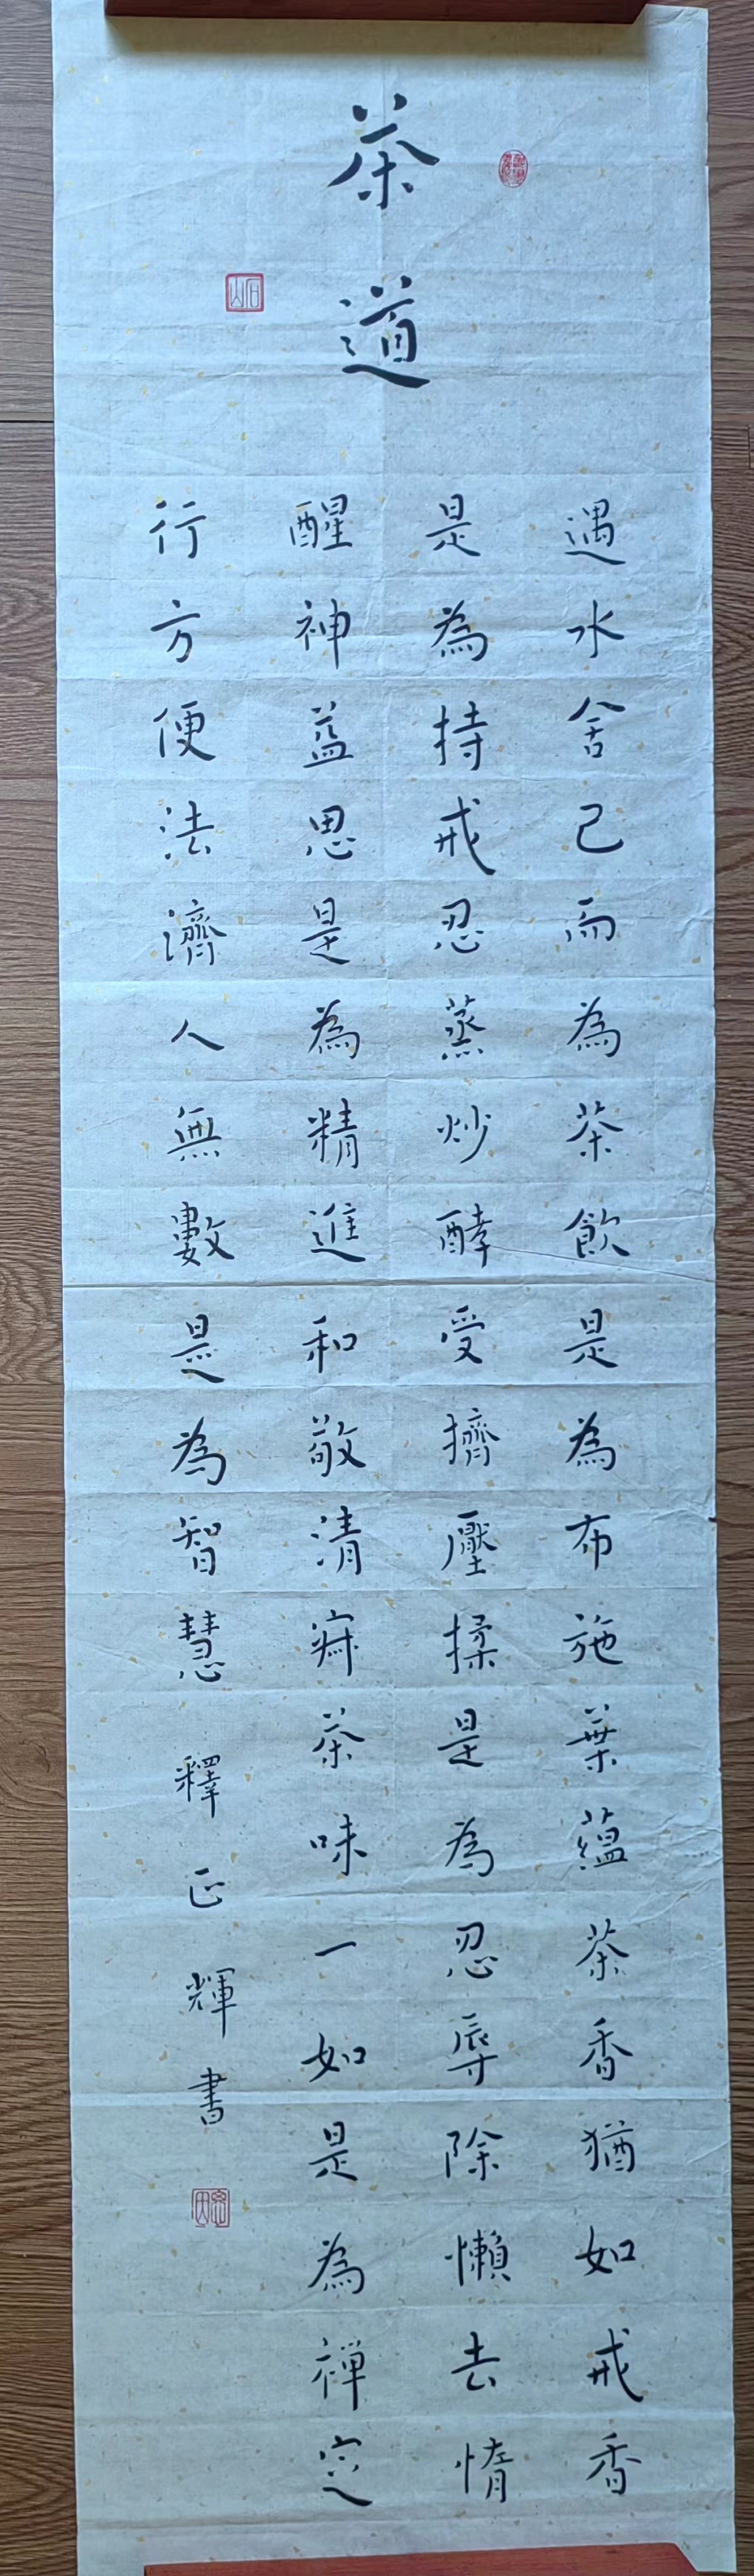 茶道
遇水舍己而為茶飲是為布施葉蘊茶香猶如戒香
是為持戒忍蒸炒酵受擠壓揉是為忍辱除懶去惰
醒神益思是為精進和敬清寂茶味一如是為禅定
行方便法濟人無數是為智慧 釋正輝書
石山